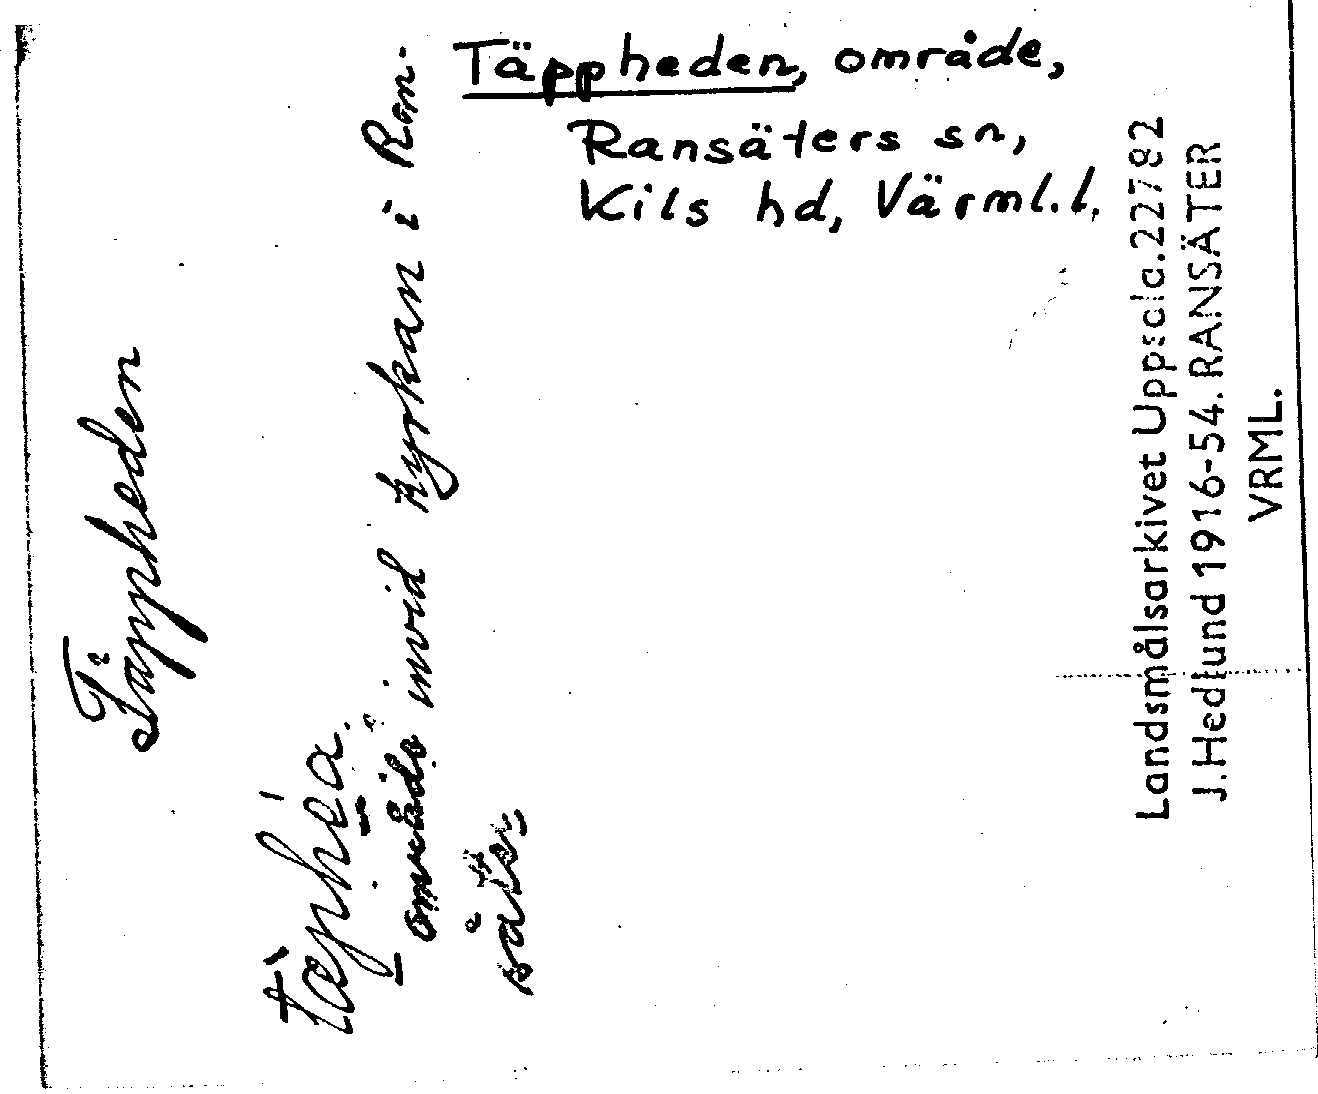 Täppheden, område,
Ransäters sn,
Kils hd, Värml. l.
Täppheden
område invid kyrkan i Ran-
säter.
Landsmålsarkivet Uppsala. 22782
J. Hedlund 1916-54. RANSÄTER
VRML.